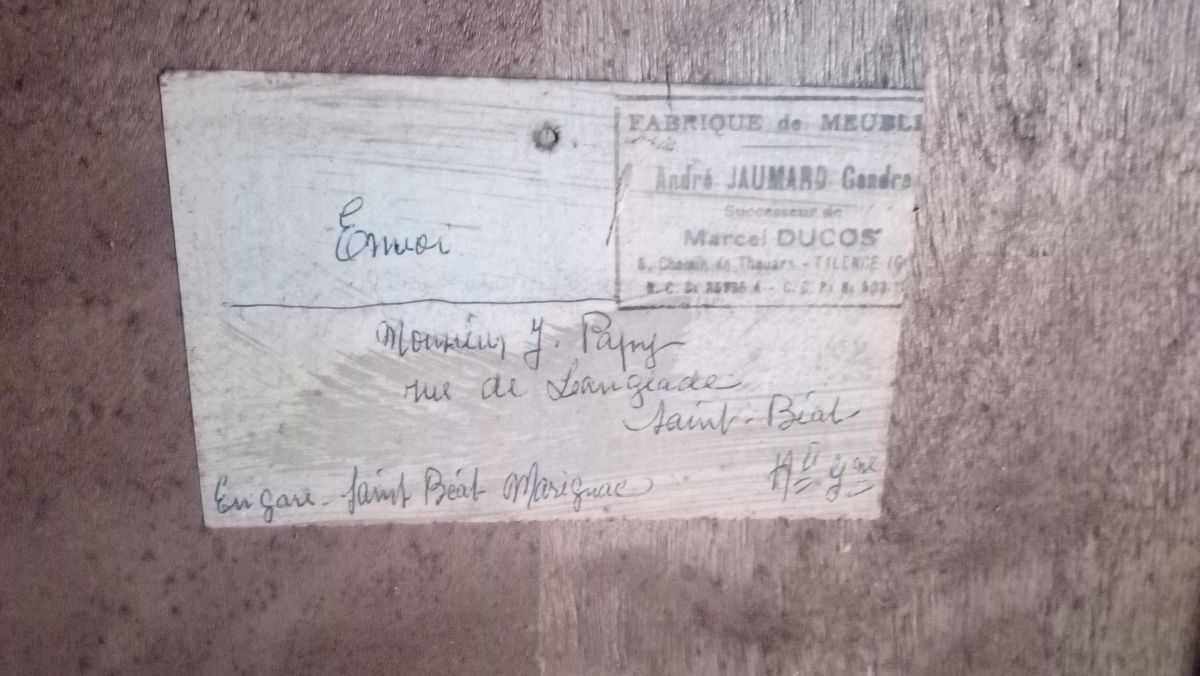 FABRIQUE de MEUBL
André JAUMARD Gendre
Successeur de
Marcel DUCOS
Chemin de Thouars - TALENCE (G
Envoi
Monsieur J. Papy
rue de Langlade
Saint-Béat
Hte Gne
En gare Saint Béat Marignac